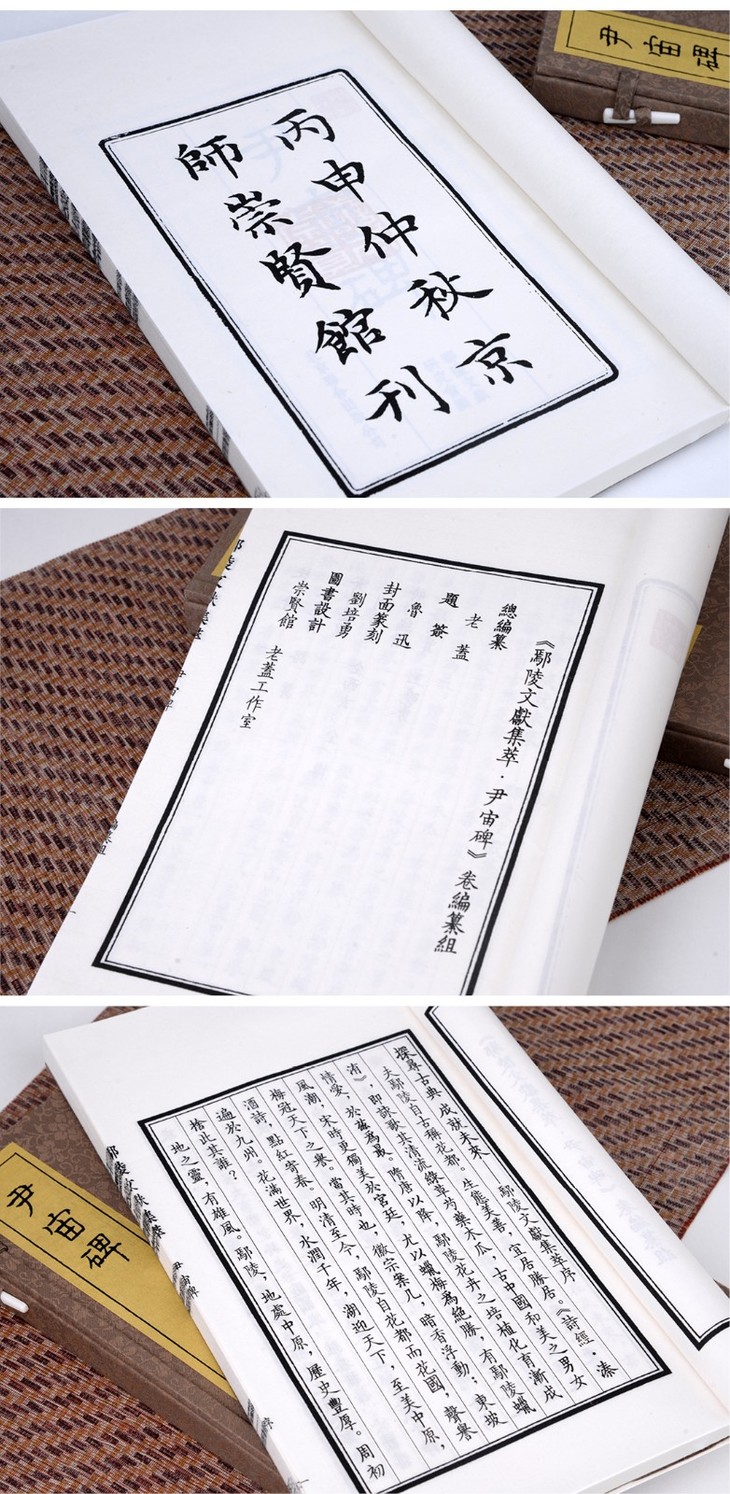 尹宙碑
丙申仲秋京
師崇賢館刊
《鄢陵文獻集萃·尹宙碑》卷編纂組
總編纂
老 蓋
題 簽
魯 迅
封面篆刻
劉培勇
圖書設計
崇賢館 老蓋工作室
尹宙碑
探尋古典 成就未來 鄢陵文獻集萃序
夫鄢陵自古稱花都。生態美善，宜居勝居。《詩經·溱
洧》，即詠歌其清流綠草芍藥木瓜，古中國和美之男女
情愛，於茲為最。隋唐以降，鄢陵花卉之培植化育漸成
風潮，宋時更獨美於宮廷，尤以蠟梅為絕勝，有鄢陵蠟
梅冠天下之譽。當其時也，徽宗案几，暗香浮動；東坡
酒詩，點紅寄春。明清至今，鄢陵自花都而花國，聲譽
遍於九州。花滿世界，水潤千年，湖迎天下，至美中原，
捨此其誰？
地之靈，有雄風。鄢陵，地處中原，歷史豐厚。周初
尹宙碑